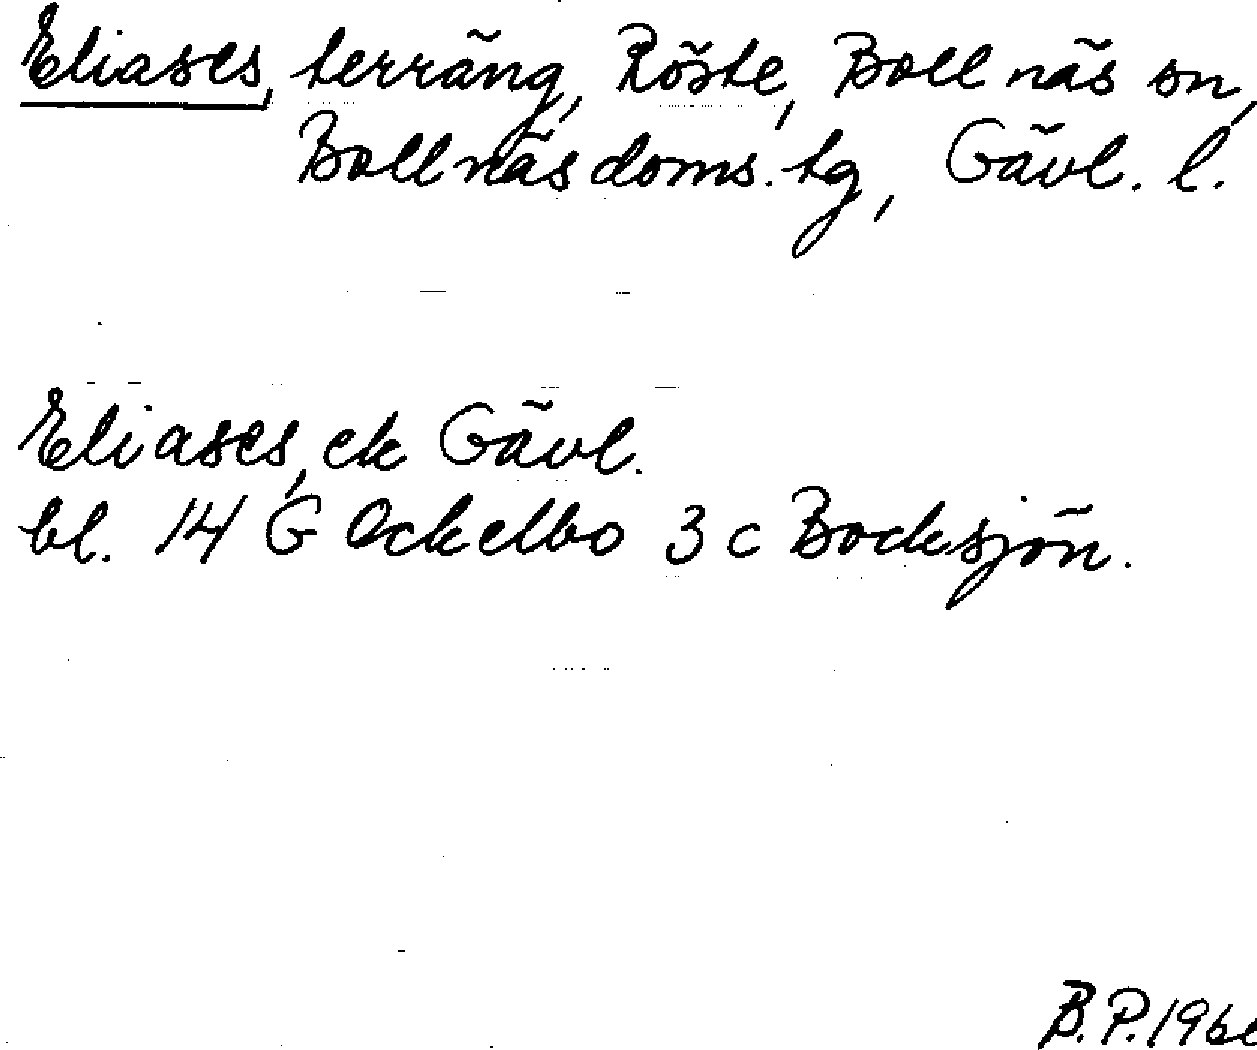 Eliases, terräng, Röste, Bollnäs sn,
Bollnäs doms. tg, Gävl. l.
Eliases, ek Gävl.
bl. 14 G Ockelbo 3 c Bocksjön.
B.P.